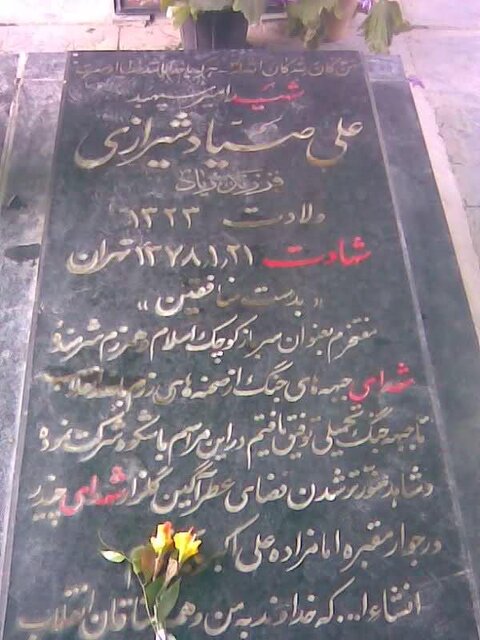 شهید امیر سپهبد
علی صیاد شیرازی
فرزند زیاد
ولادت ۱۳۲۳
شهادت ۱۳۷۸,۱,۲۱ تهران
«بدست منافقین»
مفتخرم بعنوان سرباز کوچک اسلام همرزم
شهدای جبهه های جنگ از صحنه های رزم
تا جبهه جنگ تحمیلی توفیق یافتم در این مراسم با شکوه شرکت نموده
و شاهد منورتر شدن فضای عطرآگین گلزار شهدای چیذر
در جوار مقبره امامزاده علی اکبر
انشاءا... که خداوند به من و همه مشتاقان انقلاب